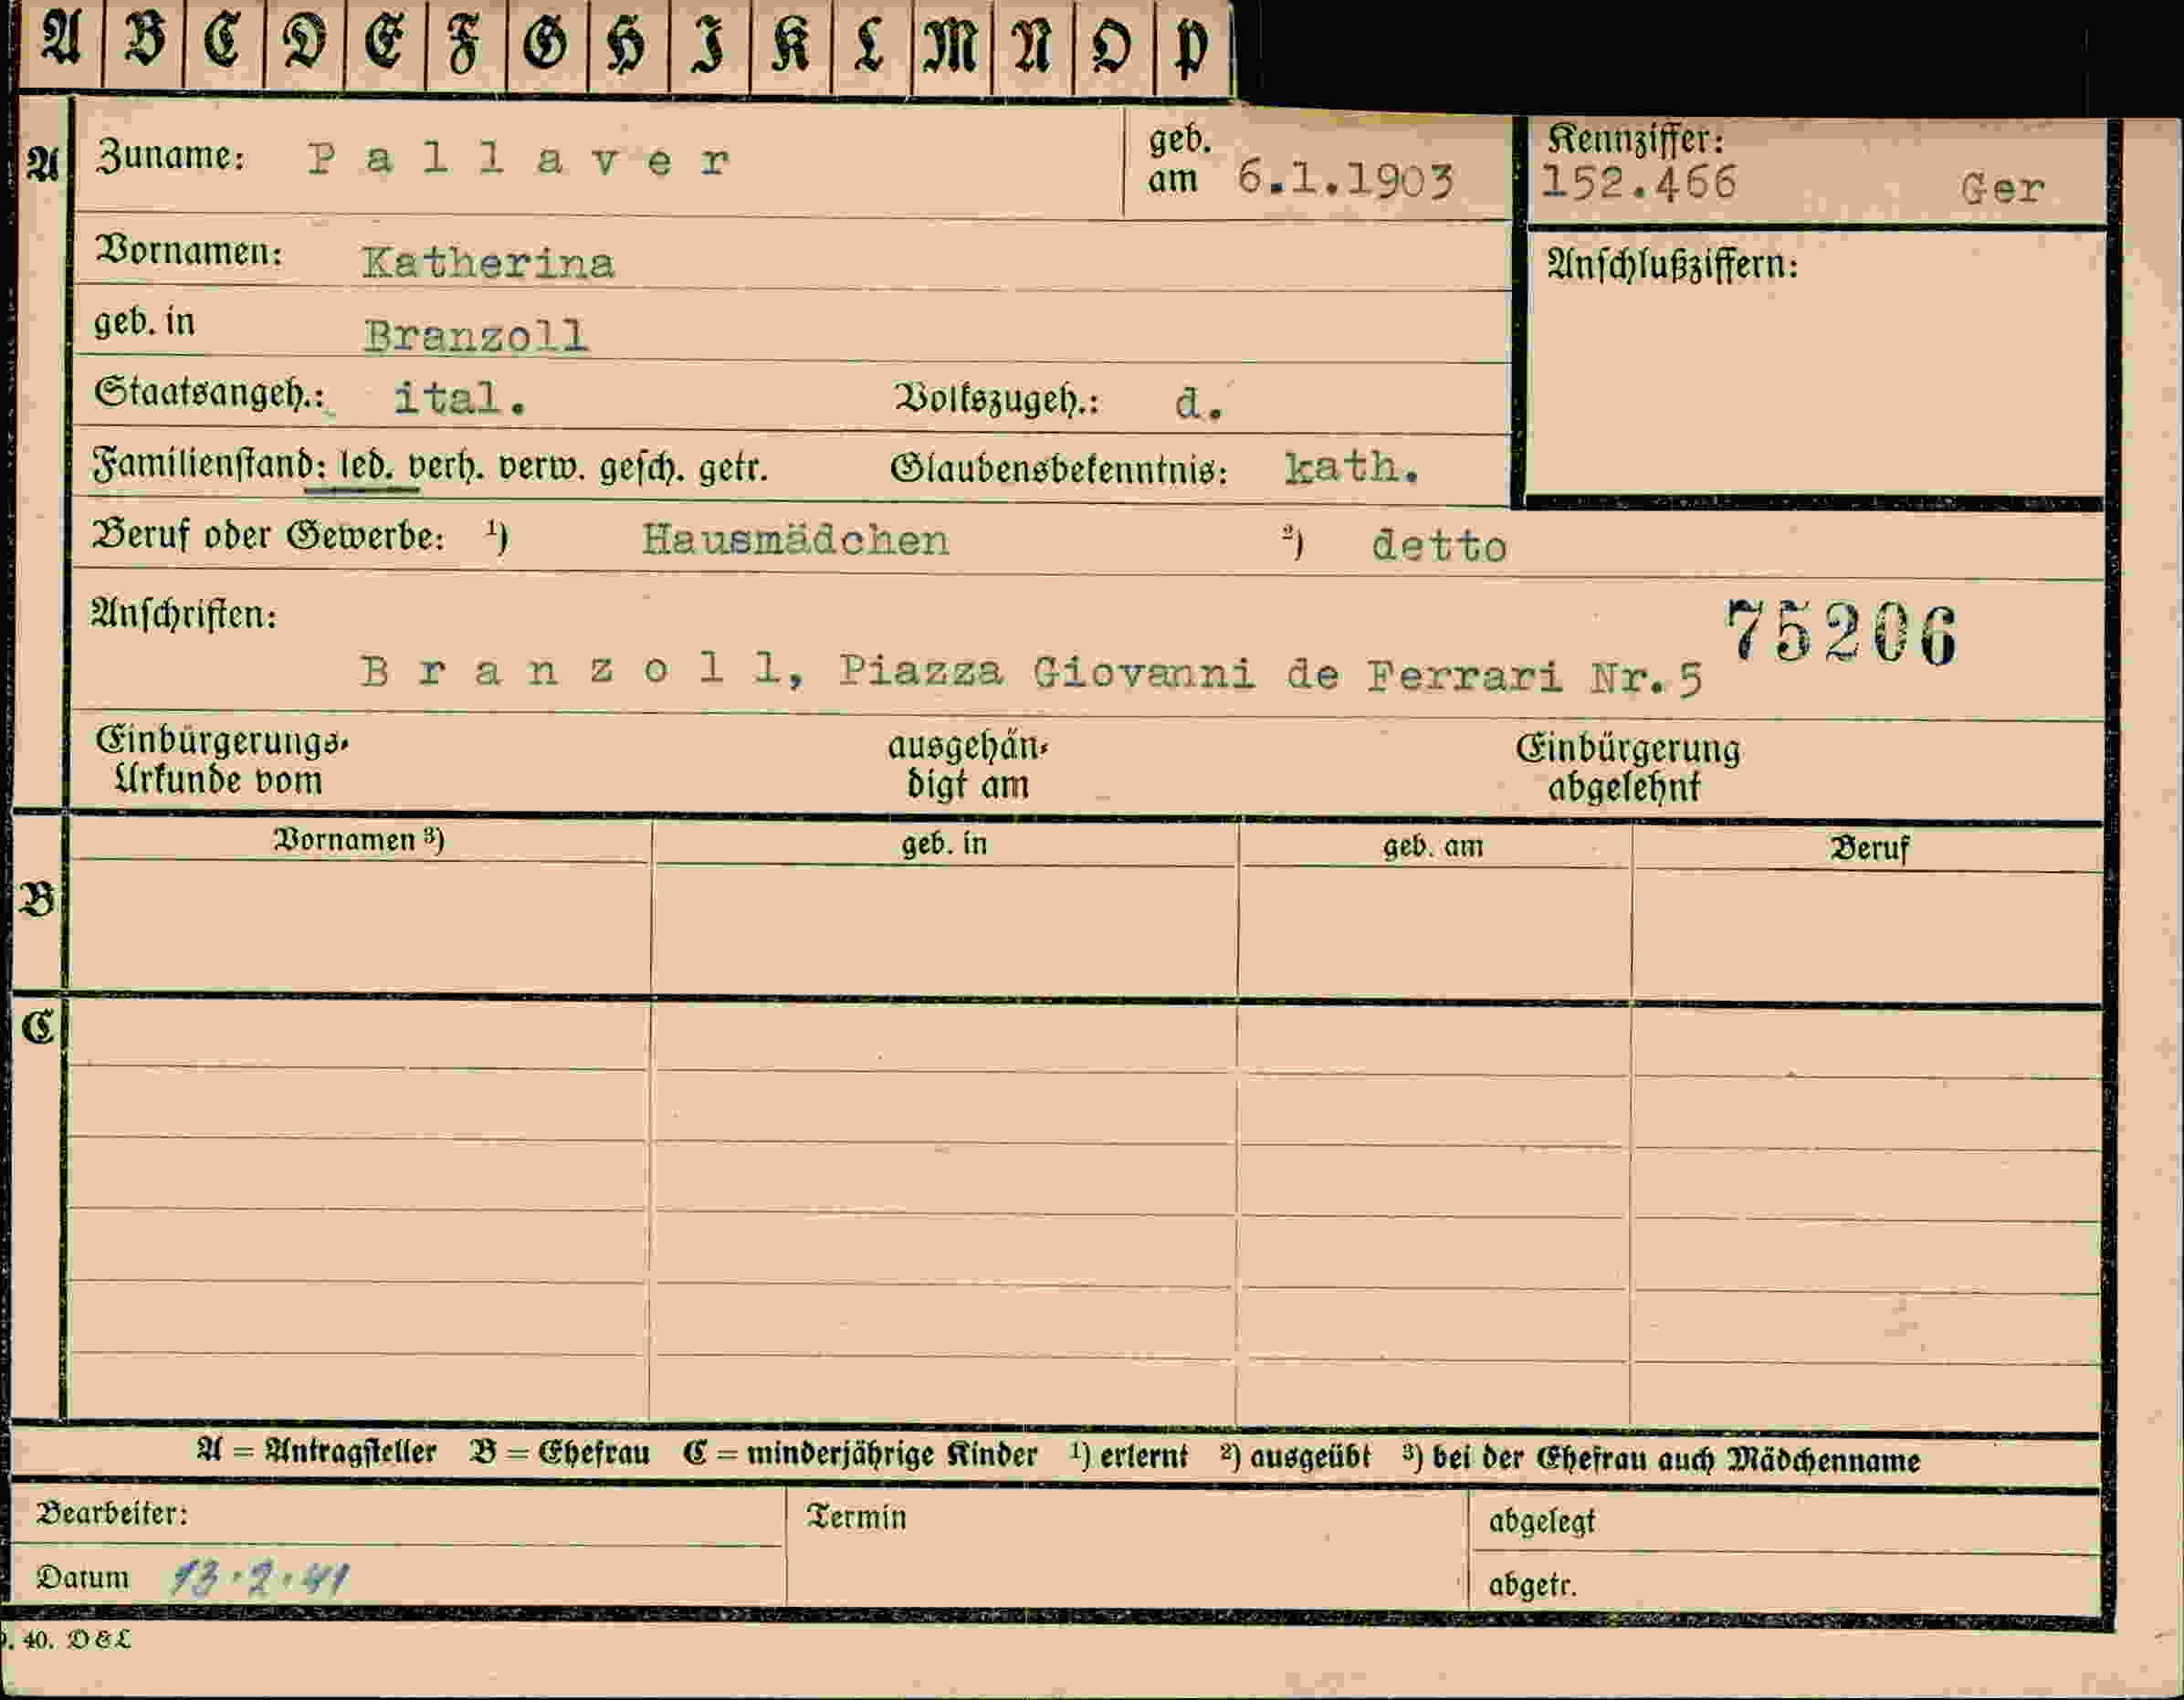 A B C D E F G H I K L M N O P
A Zuname: Pallaver geb. am 6.1.1903
Kennziffer:
152.466 Ger
Vornamen: Katherina
Anschlußziffern:
geb. in Branzoll
Staatsangeh.: ital. Volkszugeh.: d.
Familienstand: led. verh. verw. gesch. getr. Glaubensbekenntnis: kath.
Beruf oder Gewerbe: ¹) Hausmädchen ²) detto
Anschriften:
75206
Branzoll, Piazza Giovanni de Ferrari Nr.5
Einbürgerungs- ausgehän- Einbürgerung
Urkunde vom digt am abgelehnt
Vornamen ³) geb. in geb. am Beruf
B
C
A = Antragsteller B = Ehefrau C = minderjährige Kinder ¹) erlernt ²) ausgeübt ³) bei der Ehefrau auch Mädchenname
Bearbeiter: Termin abgelegt
Datum 13.2.41 abgetr.
. 40. D & L